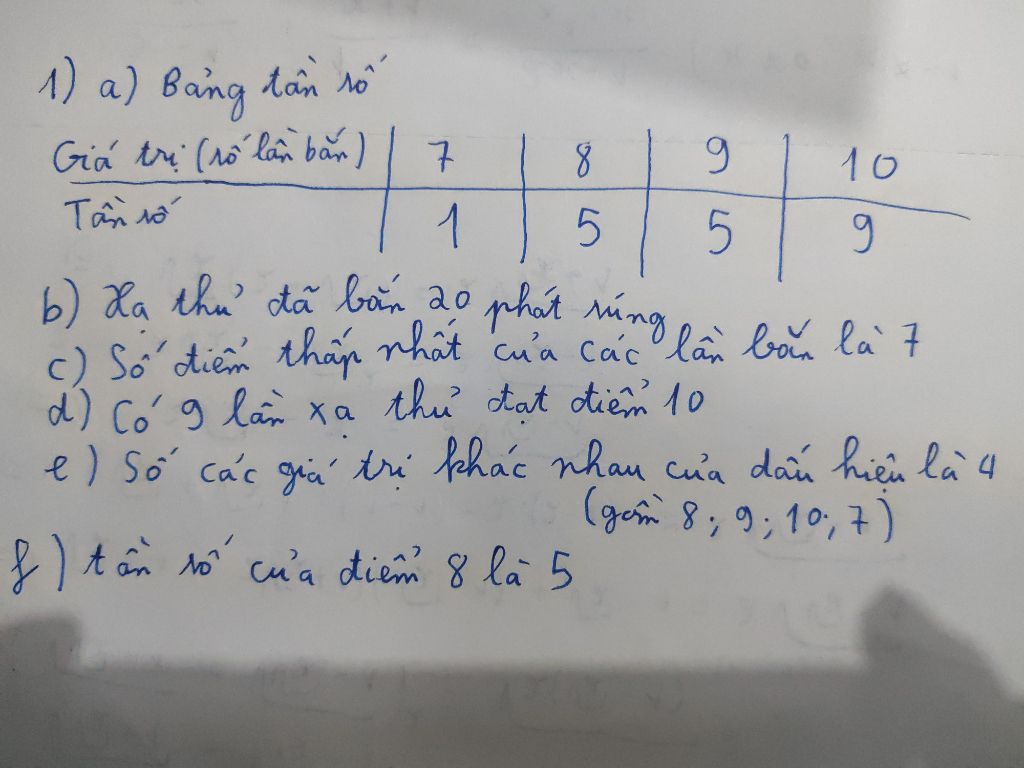 1) a) Bảng tần số
Giá trị (số lần bắn) | 7 | 8 | 9 | 10
Tần số | 1 | 5 | 5 | 9
b) Xạ thủ đã bắn 20 phát súng
c) Số điểm thấp nhất của các lần bắn là 7
d) Có 9 lần xạ thủ đạt điểm 10
e) Số các giá trị khác nhau của dấu hiệu là 4
(gồm 8; 9; 10; 7)
f) tần số của điểm 8 là 5